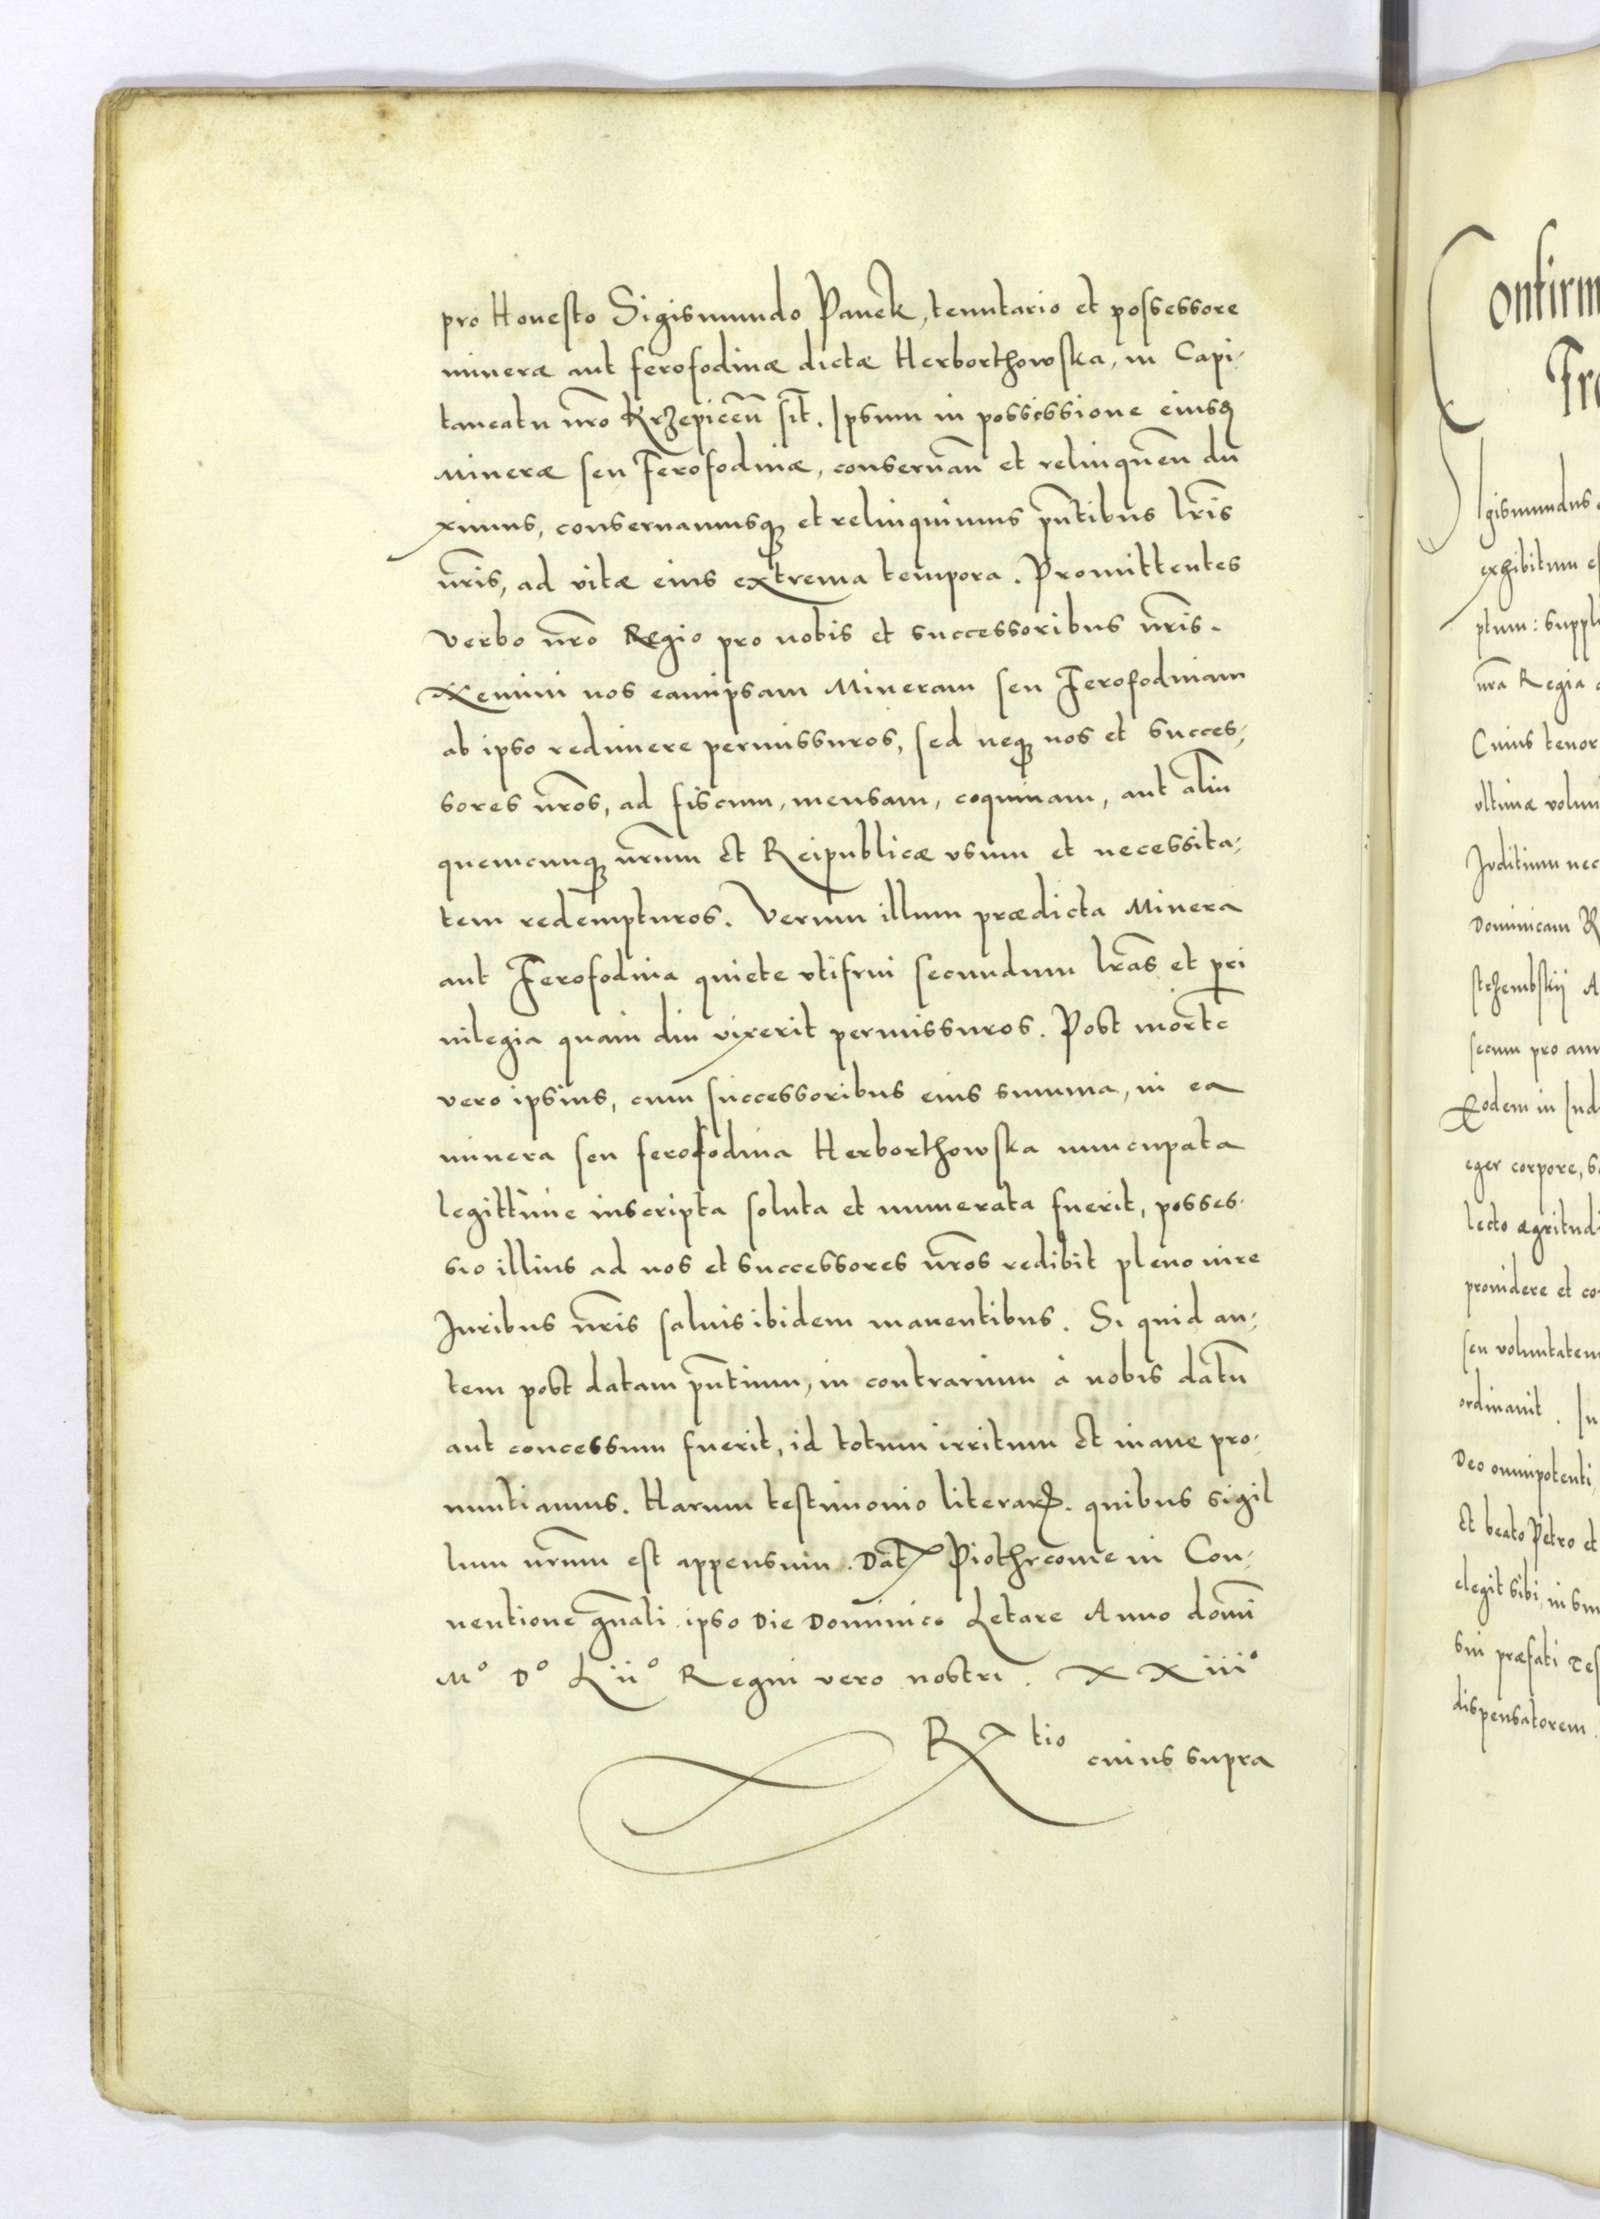 pro Honesto Sigismundo Panek, tenutario et possessore
mineræ aut ferofodinæ dictæ Herborthowska, in Capi-
taneatu nr̃o Krzepiceñ sit̃. Ipsum in possessione eiusdẽ
Mineræ seu Ferofodinæ, conservañ et relinqueñ du
ximus, conservamusq; et relinquimus pñtibus lr̃is
nr̃is, ad vitæ eius extrema tempora. Promittentes
verbo nr̃o Regio pro nobis et successoribus nr̃is.
Nemini nos eamipsam Mineram seu Ferofodinam
ab ipso redimere permissuros, sed neq; nos et succes-
sores nr̃os, ad fiscum, mensam, coquinam, aut aliũ
quemcunq; nr̃um et Reipublicæ usum et necessita-
tem redempturos. Verum illum prædicta Minera
aut Ferofodina quiete utifrui secundum lr̃as et pri
vilegia quam diu vixerit permissuros. Post mortẽ
vero ipsius, cum successoribus eius summa, in ea
minera seu ferofodina Herborthowska nuncupata
legittime inscripta soluta et numerata fuerit, posses-
sio illius ad nos et successores nr̃os redibit pleno iure
Iuribus nr̃is salvis ibidem manentibus. Si quid au-
tem post datam pñtium, in contrarium à nobis datũ
aut concessum fuerit, id totum irritum et inane pro-
nuntiamus. Harum testimonio literarꝝ. quibus sigil
lum nr̃um est appensum. Dat̃ Piothrcoviæ in Con-
ventione gñali ipso Die Dominico Letare Anno domĩ
Mº Dº Liiº Regni vero nostri. XXiiiº
R tio cuius supra
Confirm
Fr
Sigismundus
exhibitum es
ptum: suppli
nr̃a Regia
Cuius tenor
ultimæ volun
Iuditium nec
Dominicam R
strzembskij A
secum pro ann
Eodem in Iud
eger corpore, s
lecto ægritudi
providere et co
seu voluntatem
ordinavit. In
Deo omnipotenti,
Et beato Petro et
elegit sibi, in sm
sui præfati Tes
dispensatorem.